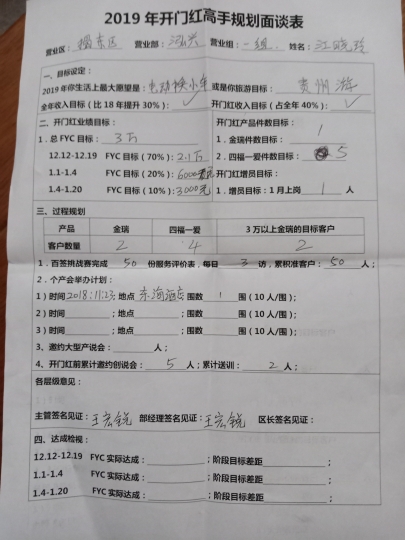 2019年开门红高手规划面谈表
营业区：揭东区 营业部：泓兴 营业组：一组. 姓名：江晓玲
一、目标设定：
2019年你生活上最大愿望是：电动换小车 或是你旅游目标：贵州游
全年收入目标（比18年提升30%）：✓ 开门红收入目标（占全年40%）：✓
二、开门红业绩目标： 开门红产品件数目标：
1．总FYC目标：3万 1．金瑞件数目标：1
12.12-12.19 FYC目标（70%）：2.1万 2．四福一爱件数目标：5
1.1-1.4 FYC目标（20%）：6000元 开门红增员目标：
1.4-1.20 FYC目标（10%）：3000元 1．增员目标：1月上岗 1 人
三、过程规划
产品 金瑞 四福一爱 3万以上金瑞的目标客户
客户数量 2 4 2
1．百签挑战赛完成 50 份服务评价表，每日 3 访，累积准客户：50 人；
2．个产会举办计划：
1）时间2018.11.23；地点 东海酒店 围数 1 围（10人/围）；
2）时间 ；地点 围数 围（10人/围）；
3）时间 ；地点 围数 围（10人/围）；
3、邀约大型产说会： 人；
4、开门红前累计邀约创说会：5 人；累计送训：2 人；
各层级意见：
主管签名见证：王宏锐 部经理签名见证：王宏锐 区长签名见证：
四、达成检视：
12.12-12.19 FYC实际达成： ；阶段目标差距
1.1-1.4 FYC实际达成： ；阶段目标差距
1.4-1.20 FYC实际达成： ；阶段目标差距